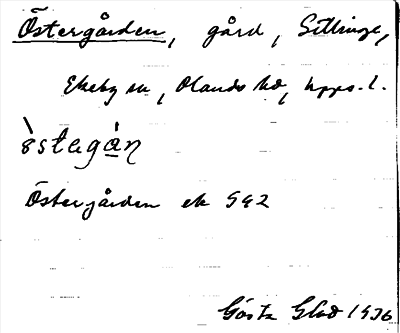 Östergården, gård, Sillinge,
Ekeby sn, Olands hd, Upps. l.
ò̀stegà̱n
Östergården ek 592
Gösta Glad 1936